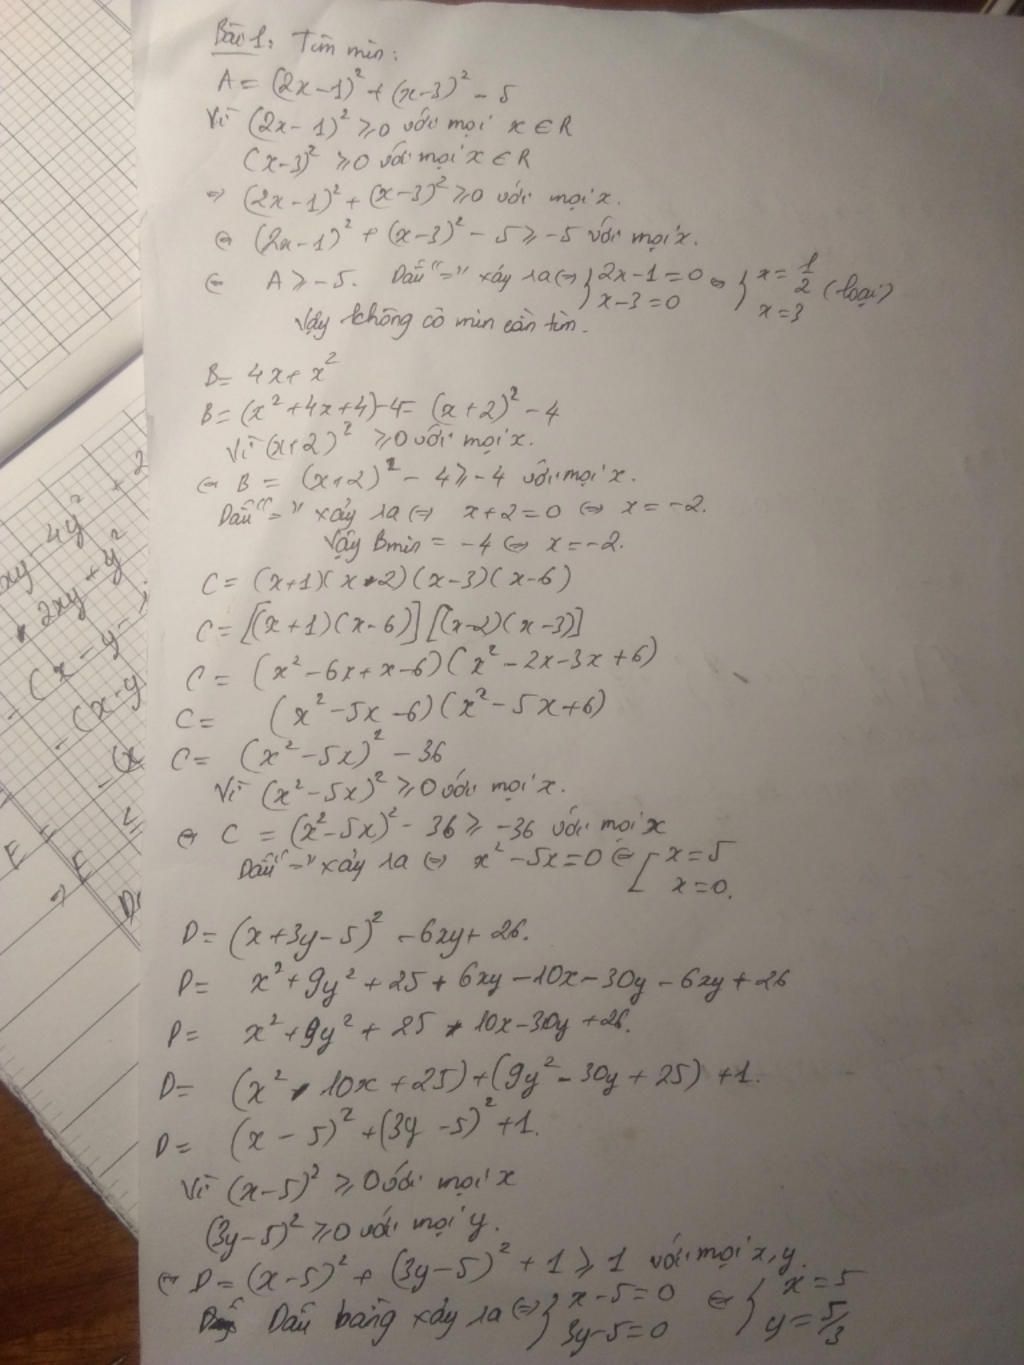 Bài 1: Tìm min:
A = (2x-1)² + (x-3)² - 5
Vì (2x-1)² ≥ 0 với mọi x ∈ R
(x-3)² ≥ 0 với mọi x ∈ R
⇒ (2x-1)² + (x-3)² ≥ 0 với mọi x.
⇔ (2x-1)² + (x-3)² - 5 ≥ -5 với mọi x.
⇔ A ≥ -5. Dấu "=" xảy ra ⇔ { 2x-1=0 x-3=0 ⇔ { x = 1/2 x = 3 (loại)
Vậy không có min cần tìm.
B = 4x + x²
B = (x² + 4x + 4) - 4 = (x+2)² - 4
Vì (x+2)² ≥ 0 với mọi x.
⇔ B = (x+2)² - 4 ≥ -4 với mọi x.
Dấu "=" xảy ra ⇔ x+2 = 0 ⇔ x = -2.
Vậy Bmin = -4 ⇔ x = -2.
C = (x+1)(x-2)(x-3)(x-6)
C = [(x+1)(x-6)][(x-2)(x-3)]
C = (x² - 6x + x - 6)(x² - 2x - 3x + 6)
C = (x² - 5x - 6)(x² - 5x + 6)
C = (x² - 5x)² - 36
Vì (x² - 5x)² ≥ 0 với mọi x.
⇔ C = (x² - 5x)² - 36 ≥ -36 với mọi x
Dấu "=" xảy ra ⇔ x² - 5x = 0 ⇔ [ x = 5 x = 0.
D = (x + 3y - 5)² - 6xy + 26.
D = x² + 9y² + 25 + 6xy - 10x - 30y - 6xy + 26
D = x² + 9y² + 25 - 10x - 30y + 26.
D = (x² - 10x + 25) + (9y² - 30y + 25) + 1.
D = (x - 5)² + (3y - 5)² + 1.
Vì (x-5)² ≥ 0 với mọi x
(3y-5)² ≥ 0 với mọi y.
⇔ D = (x-5)² + (3y-5)² + 1 ≥ 1 với mọi x, y.
Dấu bằng xảy ra ⇔ { x-5=0 3y-5=0 ⇔ { x = 5 y = 5/3
xy - 4y² + 2
2xy + y²
- (x - y
- (x - y
- (x
E
⇒ E